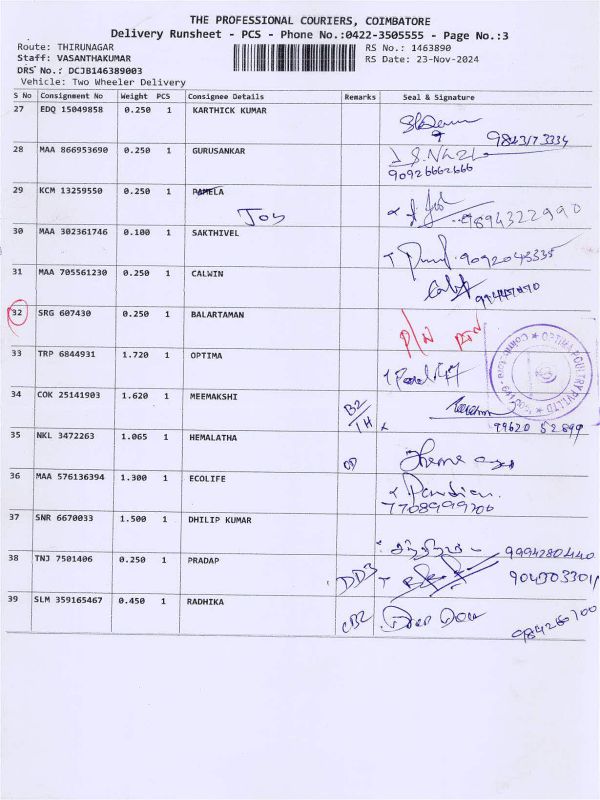 THE PROFESSIONAL COURIERS, COIMBATORE
Delivery Runsheet - PCS - Phone No.:0422-3505555 - Page No.:3
Route: THIRUNAGAR
RS No.: 1463890
Staff: VASANTHAKUMAR
RS Date: 23-Nov-2024
DRS No.: DCJB146389003
Vehicle: Two Wheeler Delivery
S No Consignment No Weight PCS Consignee Details Remarks Seal & Signature
27 EDQ 15049858 0.250 1 KARTHICK KUMAR
28 MAA 866953690 0.250 1 GURUSANKAR
90926662666
29 KCM 13259550 0.250 1 PAMELA
Joy
9894322990
30 MAA 302361746 0.100 1 SAKTHIVEL
9092043335
31 MAA 705561230 0.250 1 CALWIN
32 SRG 607430 0.250 1 BALARTAMAN
33 TRP 6844931 1.720 1 OPTIMA
OPTIMA POULTRY PVT LTD
34 COK 25141903 1.620 1 MEEMAKSHI
B2/1H
99620 52899
35 NKL 3472263 1.065 1 HEMALATHA
OD
36 MAA 576136394 1.300 1 ECOLIFE
Pandian
7708999200
37 SNR 6670033 1.500 1 DHILIP KUMAR
9994280440
38 TNJ 7501406 0.250 1 PRADAP
DD3
39 SLM 359165467 0.450 1 RADHIKA
CB2